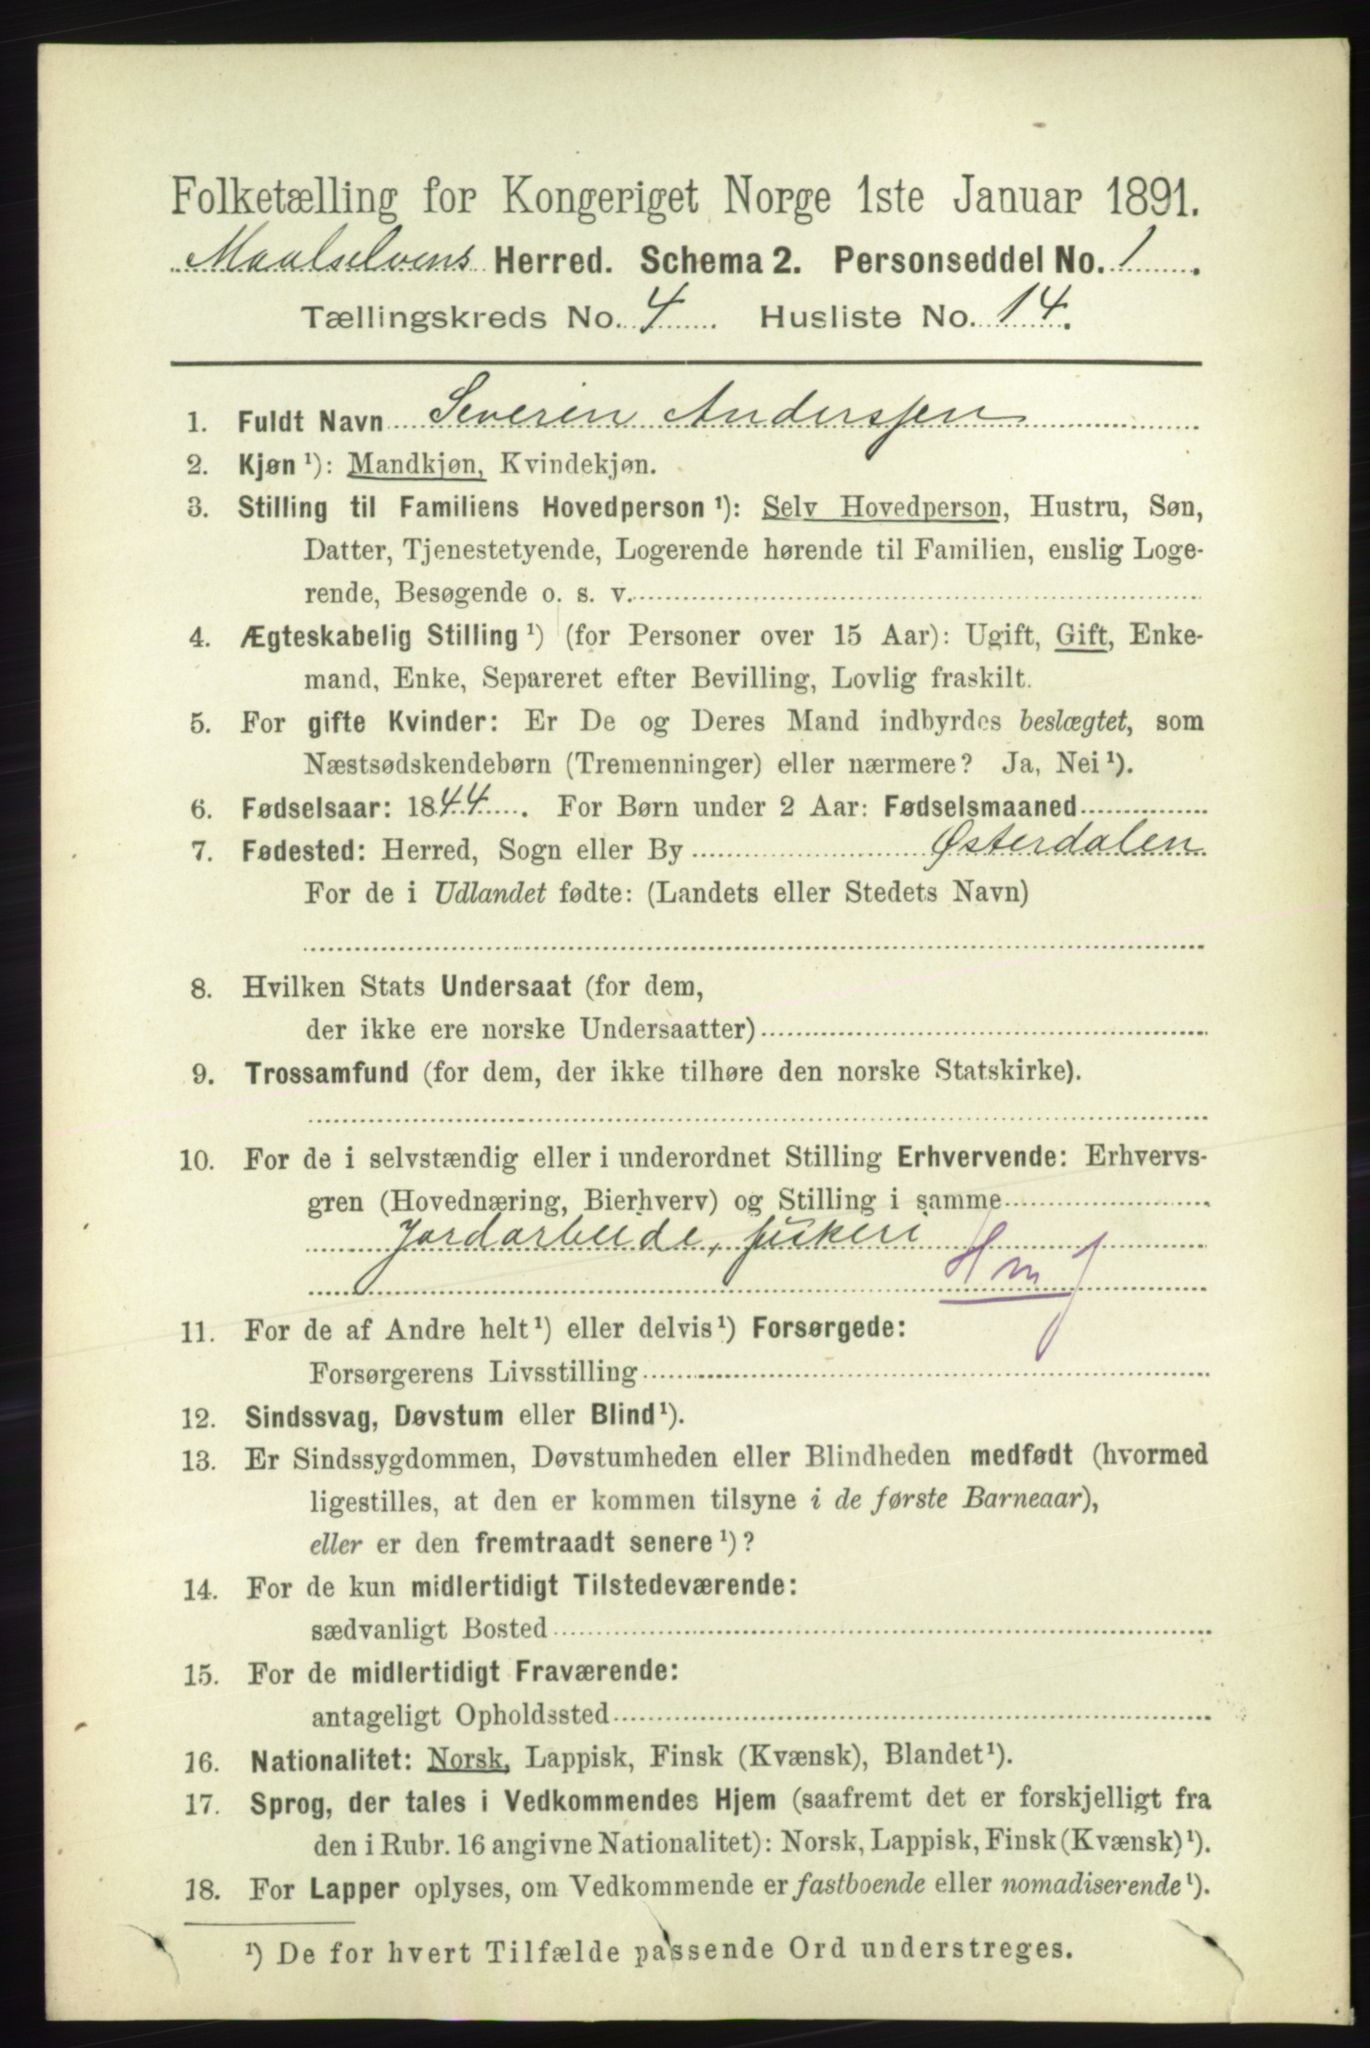 Folketælling for Kongeriget Norge 1ste Januar 1891.
Maalselvens Herred. Schema 2. Personseddel No. 1.
Tællingskreds No. 4. Husliste No. 14.
1. Fuldt Navn Severin Anderssen
2. Kjøn ¹): Mandkjøn, Kvindekjøn.
3. Stilling til Familiens Hovedperson ¹): Selv Hovedperson, Hustru, Søn,
Datter, Tjenestetyende, Logerende hørende til Familien, enslig Loge-
rende, Besøgende o. s. v.
4. Ægteskabelig Stilling ¹) (for Personer over 15 Aar): Ugift, Gift, Enke-
mand, Enke, Separeret efter Bevilling, Lovlig fraskilt.
5. For gifte Kvinder: Er De og Deres Mand indbyrdes beslægtet, som
Næstsødskendebørn (Tremenninger) eller nærmere? Ja, Nei ¹).
6. Fødselsaar: 1844. For Børn under 2 Aar: Fødselsmaaned
7. Fødested: Herred, Sogn eller By Østerdalen
For de i Udlandet fødte: (Landets eller Stedets Navn)
8. Hvilken Stats Undersaat (for dem,
der ikke ere norske Undersaatter)
9. Trossamfund (for dem, der ikke tilhøre den norske Statskirke).
10. For de i selvstændig eller i underordnet Stilling Erhvervende: Erhvervs-
gren (Hovednæring, Bierhverv) og Stilling i samme
Jordarbeide, fiskeri
Hmf
11. For de af Andre helt ¹) eller delvis ¹) Forsørgede:
Forsørgerens Livsstilling
12. Sindssvag, Døvstum eller Blind ¹).
13. Er Sindssygdommen, Døvstumheden eller Blindheden medfødt (hvormed
ligestilles, at den er kommen tilsyne i de første Barneaar),
eller er den fremtraadt senere ¹)?
14. For de kun midlertidigt Tilstedeværende:
sædvanligt Bosted
15. For de midlertidigt Fraværende:
antageligt Opholdssted
16. Nationalitet: Norsk, Lappisk, Finsk (Kvænsk), Blandet ¹).
17. Sprog, der tales i Vedkommendes Hjem (saafremt det er forskjelligt fra
den i Rubr. 16 angivne Nationalitet): Norsk, Lappisk, Finsk (Kvænsk) ¹).
18. For Lapper oplyses, om Vedkommende er fastboende eller nomadiserende ¹).
¹) De for hvert Tilfælde passende Ord understreges.